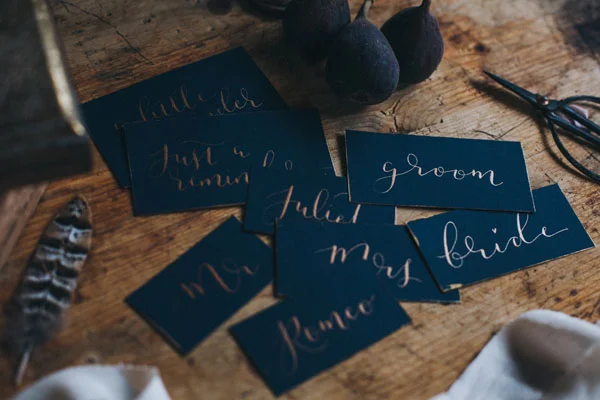 little
Just a
remin
groom
Juliet
bride
Mr
mrs
Romeo